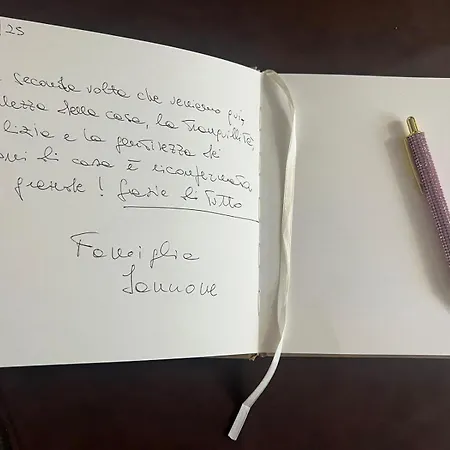 /25
seconda volta che veniamo qui,
lezza della casa, la tranquillità,
lizia e la gentilezza dei
di casa è riconfermata,
grande! Grazie di tutto
Famiglia
Iannone